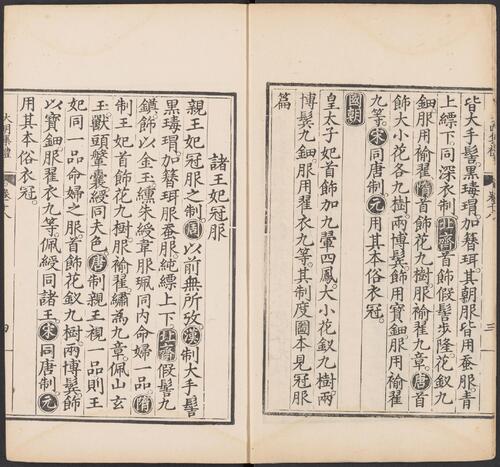 皆大手髻黑瑇瑁加簪珥其朝服皆用蠶服青
上縹下同深衣制北齊首飾假髻步搖花九
鈿服用褕翟隋首飾花九樹服褕翟九章唐首
飾大小花各九樹兩博鬢飾用寶鈿服用褕翟
九等宋同唐制元用其本俗衣冠。
國朝
皇太子妃首飾加九翬四鳳大小花釵九樹兩
博鬢九鈿服用翟衣九等其制度圖本見冠服
篇
三
諸王妃冠服
親王妃冠服之制周以前無所攷漢制大手髻
黑瑇瑁加簪珥服蠶服純縹上下北齊假髻九
鎮飾以金玉纁朱綬韋服珮同內命婦一品隋
制王妃首飾花九樹服褕翟繡為九章佩山玄
玉獸頭鞶囊綬同夫色唐制親王視一品則王
妃同一品命婦之服首飾花釵九樹兩博鬢飾
以寶鈿服翟衣九等佩綬同諸王宋同唐制元
用其本俗衣冠。
大明集禮
四